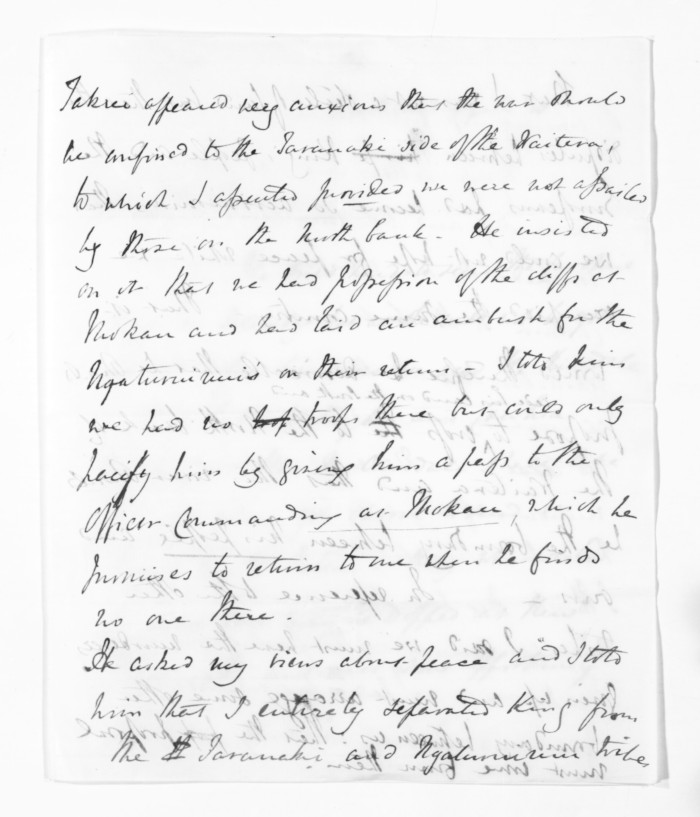 Takrei appeared very anxious that the war should
be confined to the Taranaki side of the Waitera,
to which I assented provided we were not assailed
by those on the North bank - He insisted
on it that we had possession of the cliffs at
Mokau and had laid an ambush for the
Ngatiruinuis on their return - I told him
we had no troops there but could only
pacify him by giving him a pass to the
Officer Commanding at Mokau, which he
promises to return to me when he finds
no one there.
He asked my views about peace and I told
him that I entirely separated King from
the Taranaki and Ngatiruinui tribes